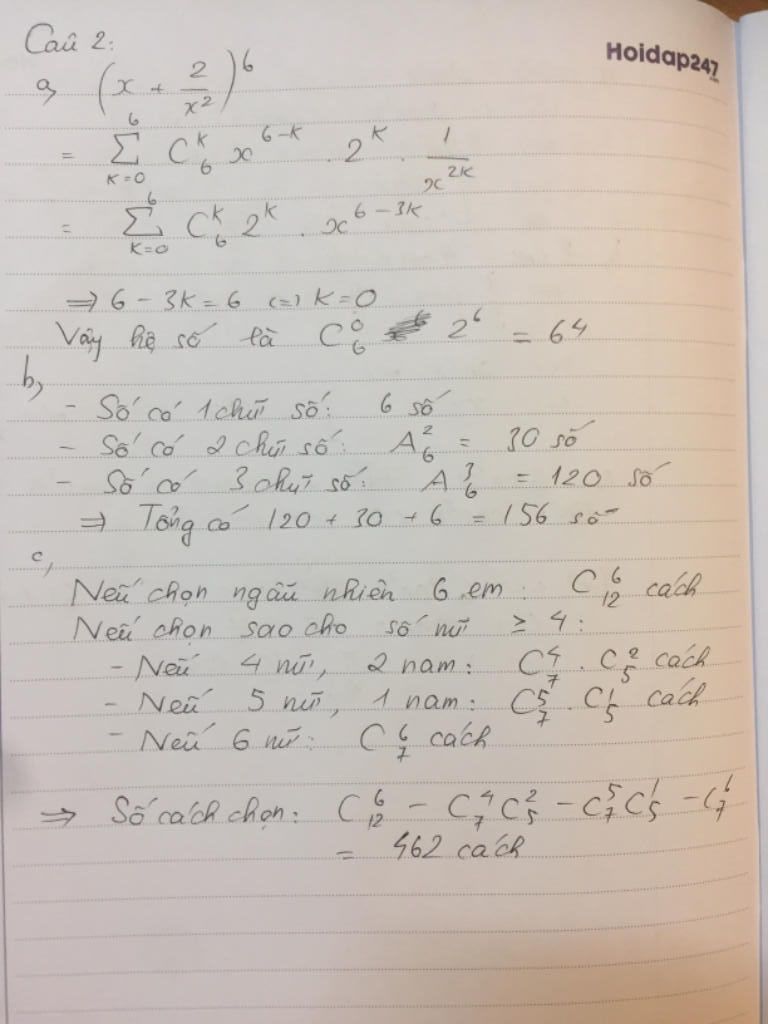 Câu 2:
Hoidap247
a, (x + 2/x²)⁶
= ∑_{K=0}^{6} C_6^K x^{6-K} . 2^K . 1/x^{2K}
= ∑_{K=0}^{6} C_6^K 2^K . x^{6-3K}
⇒ 6 - 3K = 6 (=) K = 0
Vậy hệ số là C_6^0 2^6 = 64
b,
- Số có 1 chữ số: 6 số
- Số có 2 chữ số: A_6^2 = 30 số
- Số có 3 chữ số: A_6^3 = 120 số
⇒ Tổng có 120 + 30 + 6 = 156 số
c,
Nếu chọn ngẫu nhiên 6 em: C_12^6 cách
Nếu chọn sao cho số nữ ≥ 4:
- Nếu 4 nữ, 2 nam: C_7^4 . C_5^2 cách
- Nếu 5 nữ, 1 nam: C_7^5 . C_5^1 cách
- Nếu 6 nữ: C_7^6 cách
⇒ Số cách chọn: C_12^6 - C_7^4 C_5^2 - C_7^5 C_5^1 - C_7^6
= 462 cách